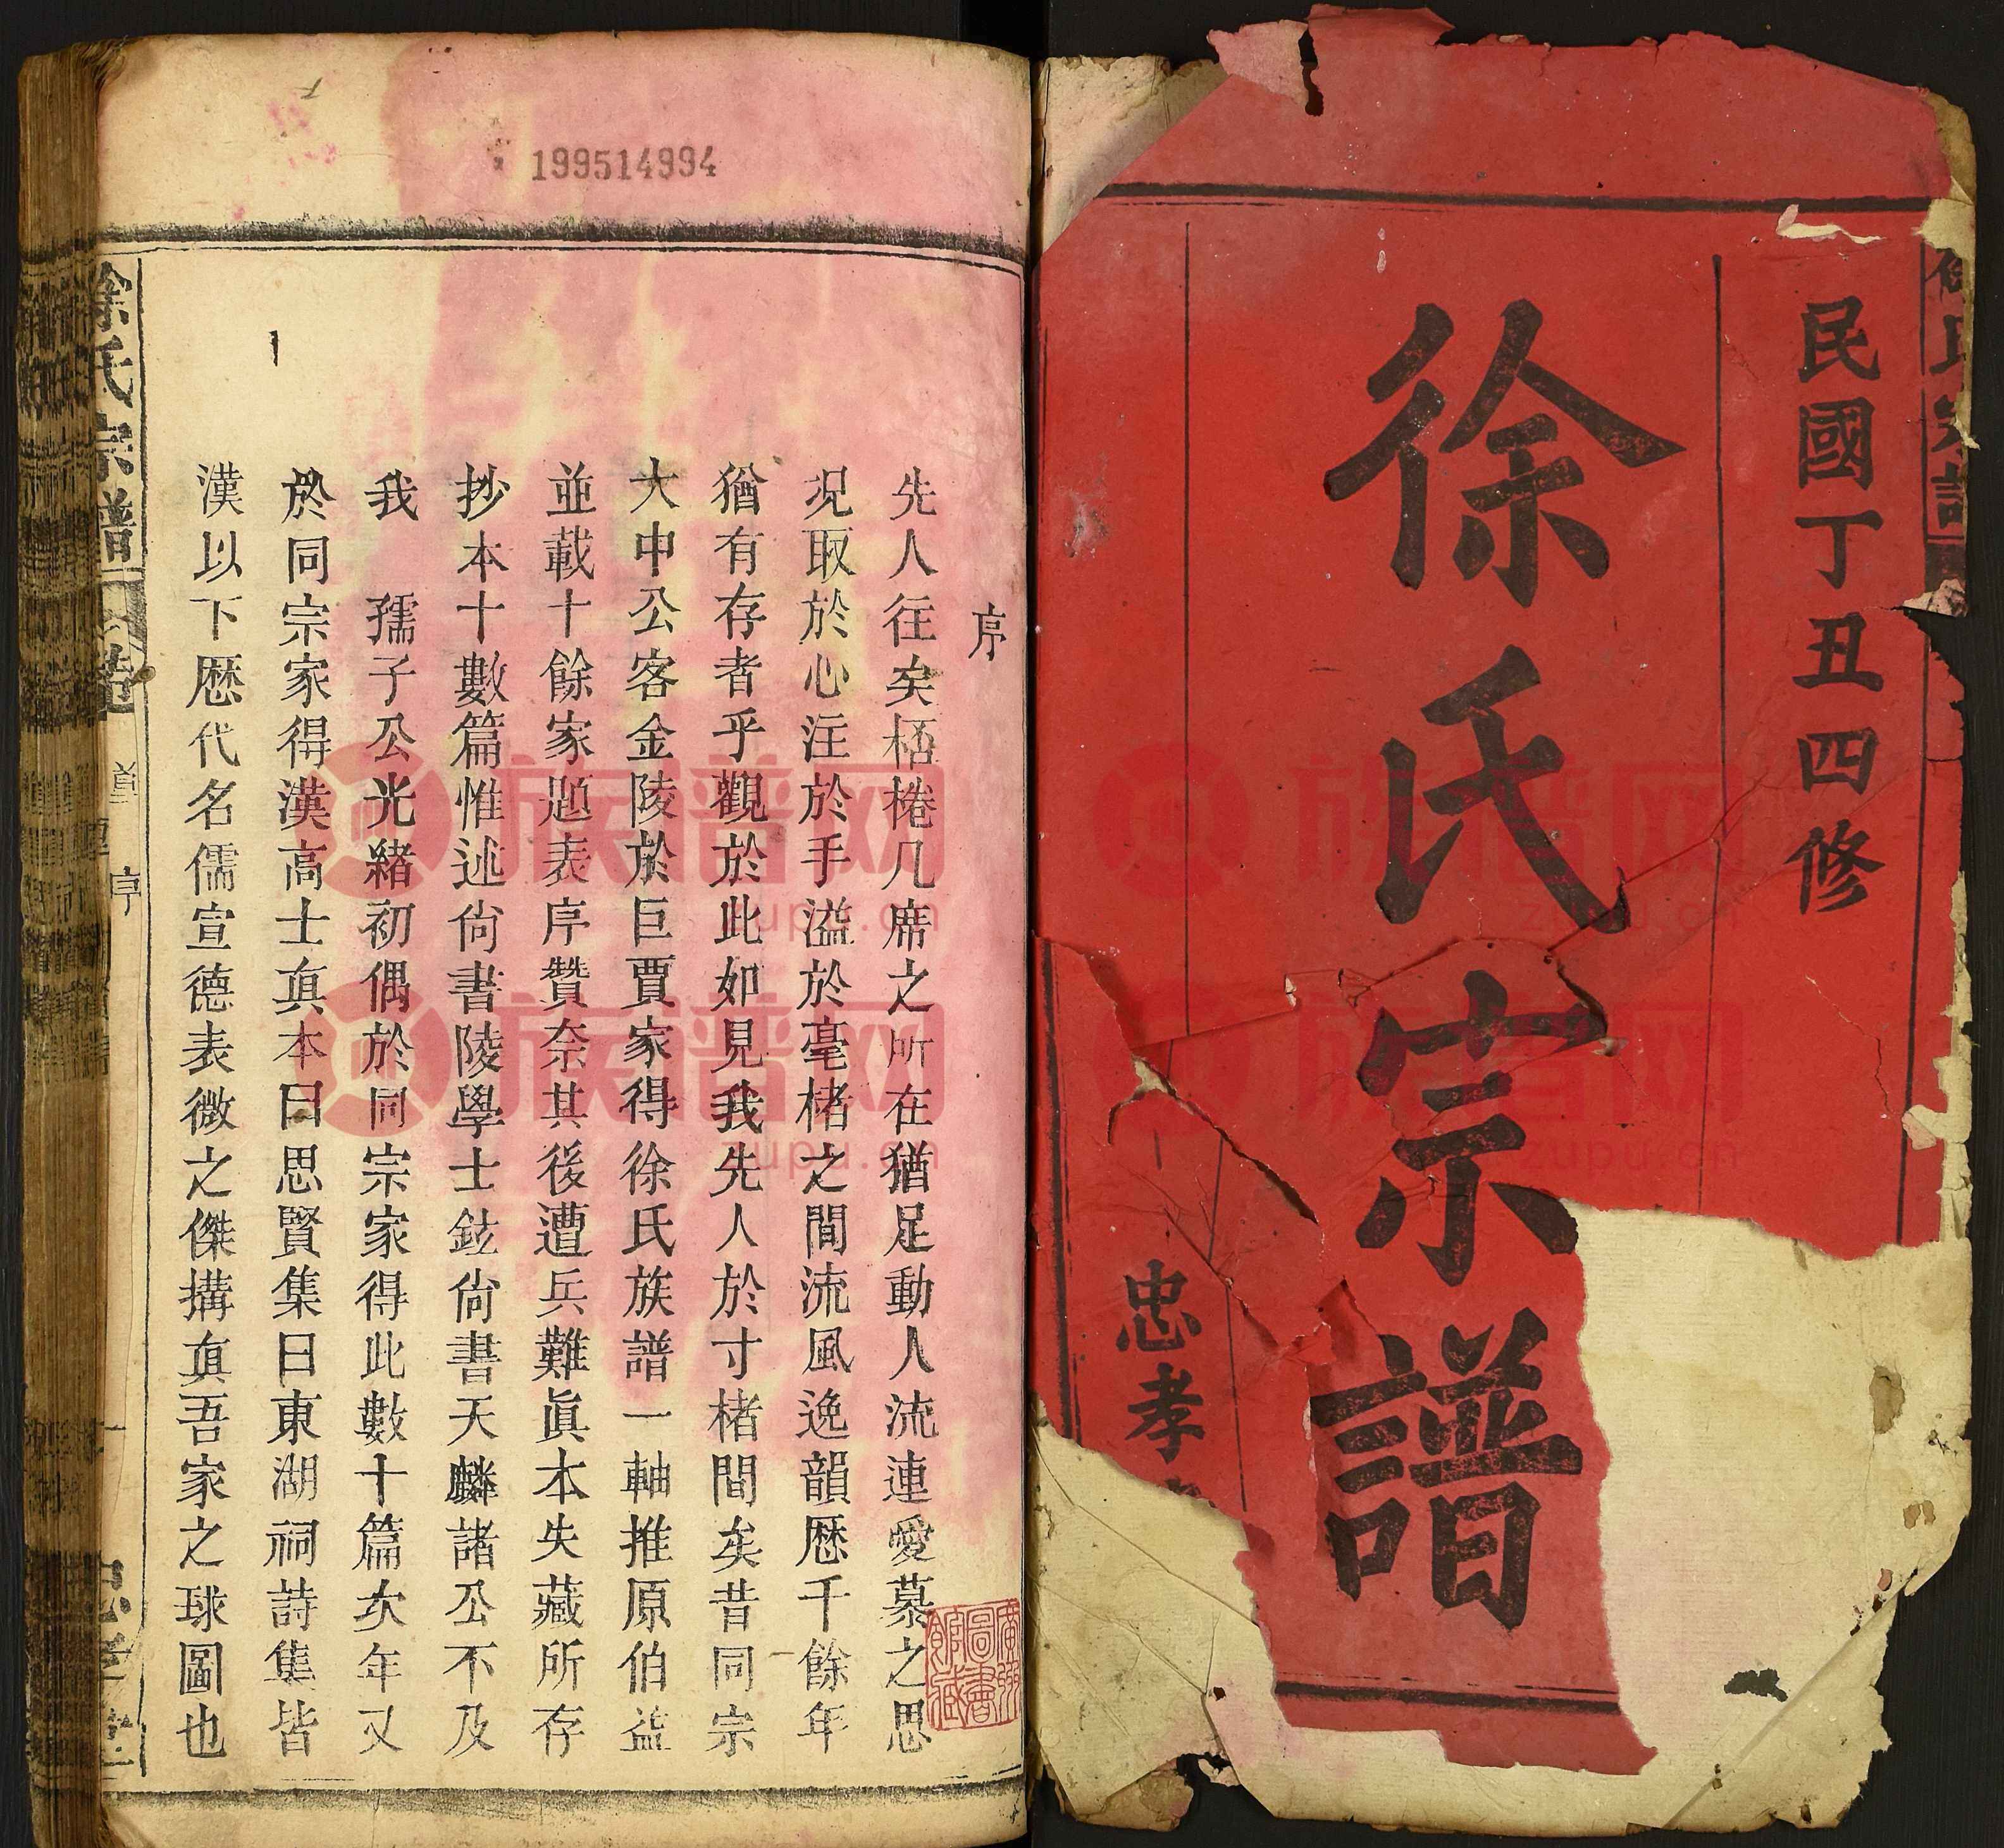 民國丁丑四修
徐氏宗譜
忠孝
199514994
序
先人往矣桮棬几席之所在猶足動人流連愛慕之思
况取於心注於手溢於毫楮之間流風逸韻歷千餘年
猶有存者乎觀於此如見我先人於寸楮間矣昔同宗
大中公客金陵於巨賈家得徐氏族譜一軸推原伯益
並載十餘家題表序贊奈其後遭兵難眞本失藏所存
抄本十數篇惟述尙書陵學士鉉尙書天麟諸公不及
我 孺子公光緒初偶於同宗家得此數十篇次年又
於同宗家得漢高士眞本曰思賢集曰東湖祠詩集皆
漢以下歷代名儒宣德表微之傑搆眞吾家之球圖也
徐氏宗譜
序
族譜网
zupu.cn